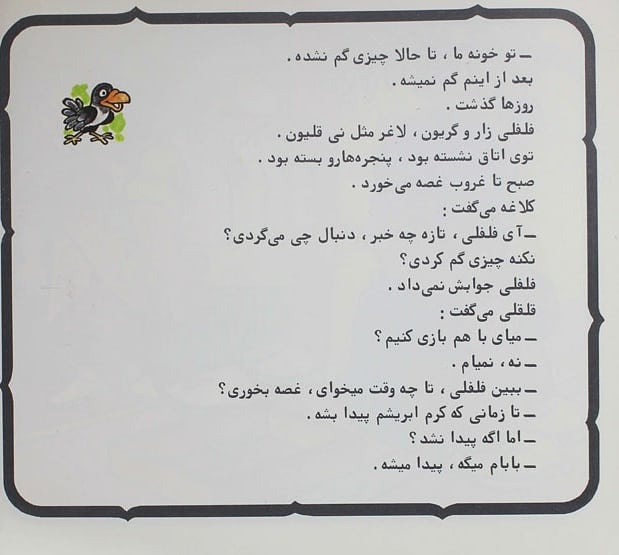 ــ تو خونه ما ، تا حالا چیزی گم نشده .
بعد از اینم گم نمیشه .
روزها گذشت .
فلفلی زار و گریون ، لاغر مثل نی قلیون .
توی اتاق نشسته بود ، پنجره‌هارو بسته بود .
صبح تا غروب غصه می‌خورد .
کلاغه می‌گفت :
ــ آی فلفلی ، تازه چه خبر ، دنبال چی می‌گردی؟
نکنه چیزی گم کردی؟
فلفلی جوابش نمی‌داد .
قلقلی می‌گفت :
ــ میای با هم بازی کنیم ؟
ــ نه ، نمیام .
ــ ببین فلفلی ، تا چه وقت میخوای ، غصه بخوری؟
ــ تا زمانی که کرم ابریشم پیدا بشه .
ــ اما اگه پیدا نشد ؟
ــ بابام میگه ، پیدا میشه .